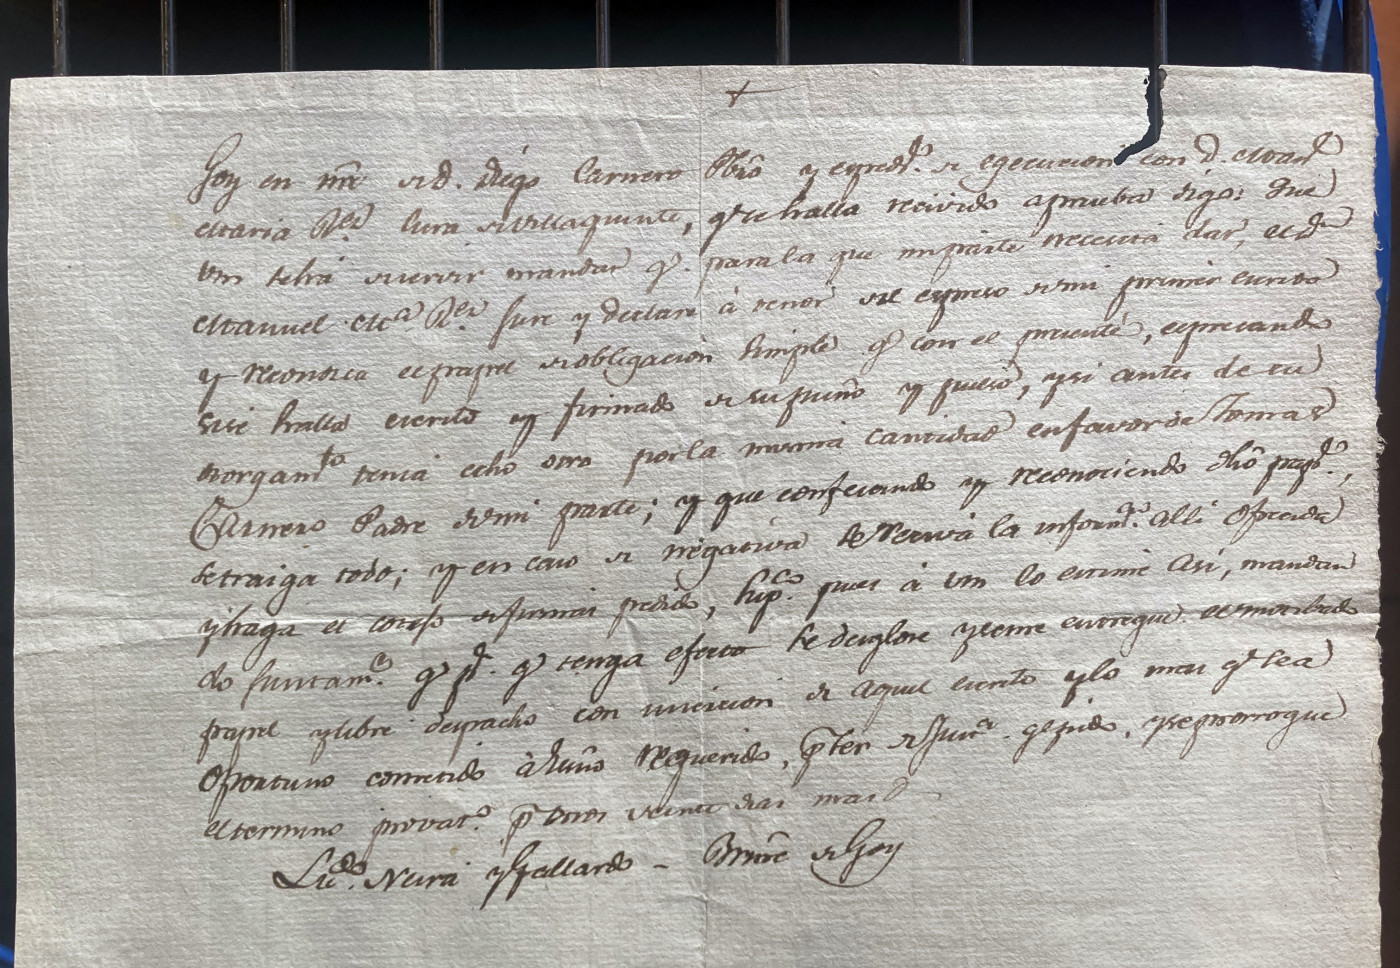 Goy en nrê de D. Diego Carnero Pbrô y expedte. de egecucion con D. Man.l
Maria Rl. Cura de Villaquinte, q.e se halla recivido aprueba digo: Que
Vm sehá de servir mandar q.e para la que mi parte necesita dar, el D.n
Manuel M.a Rl. Jure y declare á tenor del expreso de mi primer escrito
y reconozca el papel de obligacion simple q.e con el presenté, expresando
si se halla escrito y firmado de su puño y pulso, y si antes de su
otorgam.to tenia echo otro por la misma cantidad en favor de Tomas
Carnero Padre de mi parte; y que confesando y reconociendo dhô papel,
se traiga todo; y en caso de negativa se reciva la inform.n alli ofrecida
y haga el cotejo de firmas pedido, Sup.co pues á Vm lo estime Asi, mandan
do juntam.e q.e p.a q.e tenga efecto se desglose y se me entregue el motibado
papel y libre despacho con insercion de aquel escrito y lo mas q.e sea
Oportuno cometido à Essnô Requerido, por ser de Just.a que pido, y se prorrogue
el termino provat.o por otros veinte dias mas
Licdo. Neira y Gallardo - Bmê de Goy